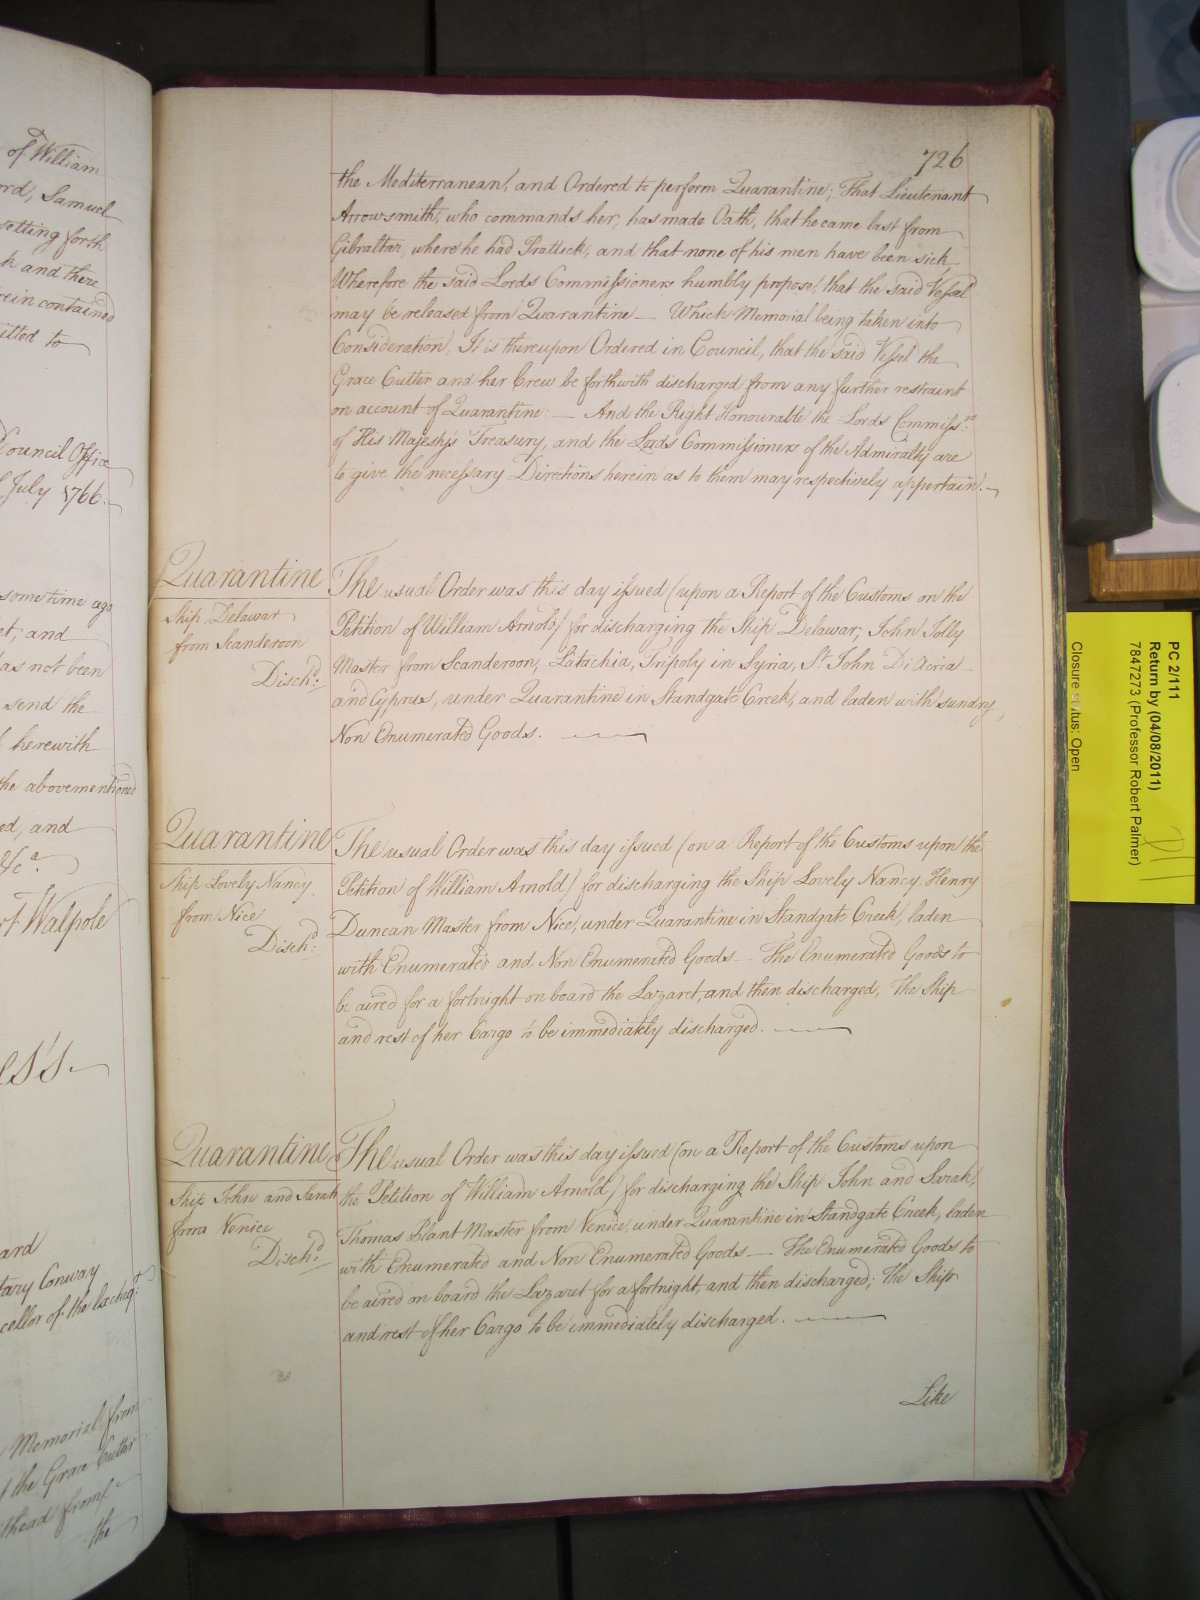 of William
ord, Samuel
setting forth
k and there
rein contained
itted to
Council Office
July 1766.
some time ago
et, and
as not been
send the
herewith
the abovementioned
ed, and
&c.a
t Walpole
ess's.
ard
tary Conway
cellor of the Excheq.r
Memorial from
the Grace Cutter
ithead from
the
726
the Mediterranean, and Ordered to perform Quarantine; That Lieutenant
Arrowsmith, who commands her, has made Oath, that he came last from
Gibraltar, where he had Prattick, and that none of his men have been sick
Wherefore the said Lords Commissioners humbly propose, that the said Vessel
may be released from Quarantine — Which Memorial being taken into
Consideration, It is thereupon Ordered in Council, that the said Vessel the
Grace Cutter and her Crew be forthwith discharged from any further restraint
on account of Quarantine. — And the Right Honourable the Lords Commiss.rs
of His Majesty's Treasury, and the Lords Commissioners of the Admiralty are
to give the necessary Directions herein as to them may respectively appertain.—
Quarantine
Ship Delawar
from Scanderoon
Disch.d
The usual Order was this day issued (upon a Report of the Customs on the
Petition of William Arnold) for discharging the Ship Delawar, John Jolly
Master from Scanderoon, Latachia, Tripoly in Syria, St. John D'Acria
and Cyprus, under Quarantine in Standgate Creek, and laden with sundry
Non Enumerated Goods.
Quarantine
Ship Lovely Nancy
from Nice
Disch.d
The usual Order was this day issued (on a Report of the Customs upon the
Petition of William Arnold) for discharging the Ship Lovely Nancy, Henry
Duncan Master from Nice, under Quarantine in Standgate Creek, laden
with Enumerated and Non Enumerated Goods — The Enumerated Goods to
be aired for a fortnight on board the Lazaret, and then discharged, the Ship
and rest of her Cargo to be immediately discharged.
Quarantine
Ship John and Sarah
from Venice
Disch.d
The usual Order was this day issued (on a Report of the Customs upon
the Petition of William Arnold) for discharging the Ship John and Sarah,
Thomas Plant Master from Venice, under Quarantine in Standgate Creek, laden
with Enumerated and Non Enumerated Goods — The Enumerated Goods to
be aired on board the Lazaret for a fortnight, and then discharged; the Ship
and rest of her Cargo to be immediately discharged.
Like
PC 2/111
Return by (04/08/2011)
7847273 (Professor Robert Palmer)
Closure status: Open